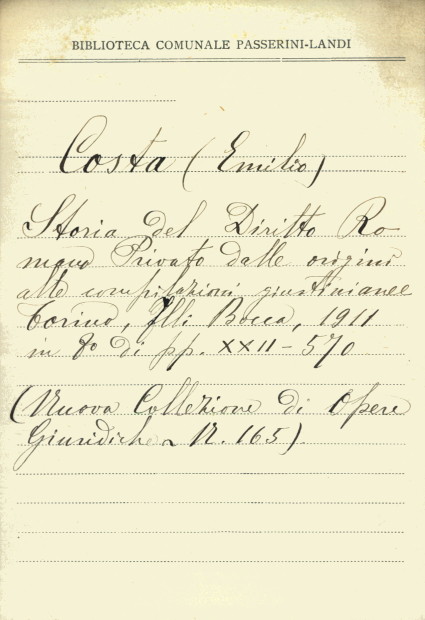 BIBLIOTECA COMUNALE PASSERINI-LANDI
Costa (Emilio)
Storia del Diritto Ro-
mano Privato dalle origini
alle compilazioni giustinianee
Torino, Flli Bocca, 1911
in 8o di pp. XXII-570
(Nuova Collezione di Opere
Giuridiche N. 165).